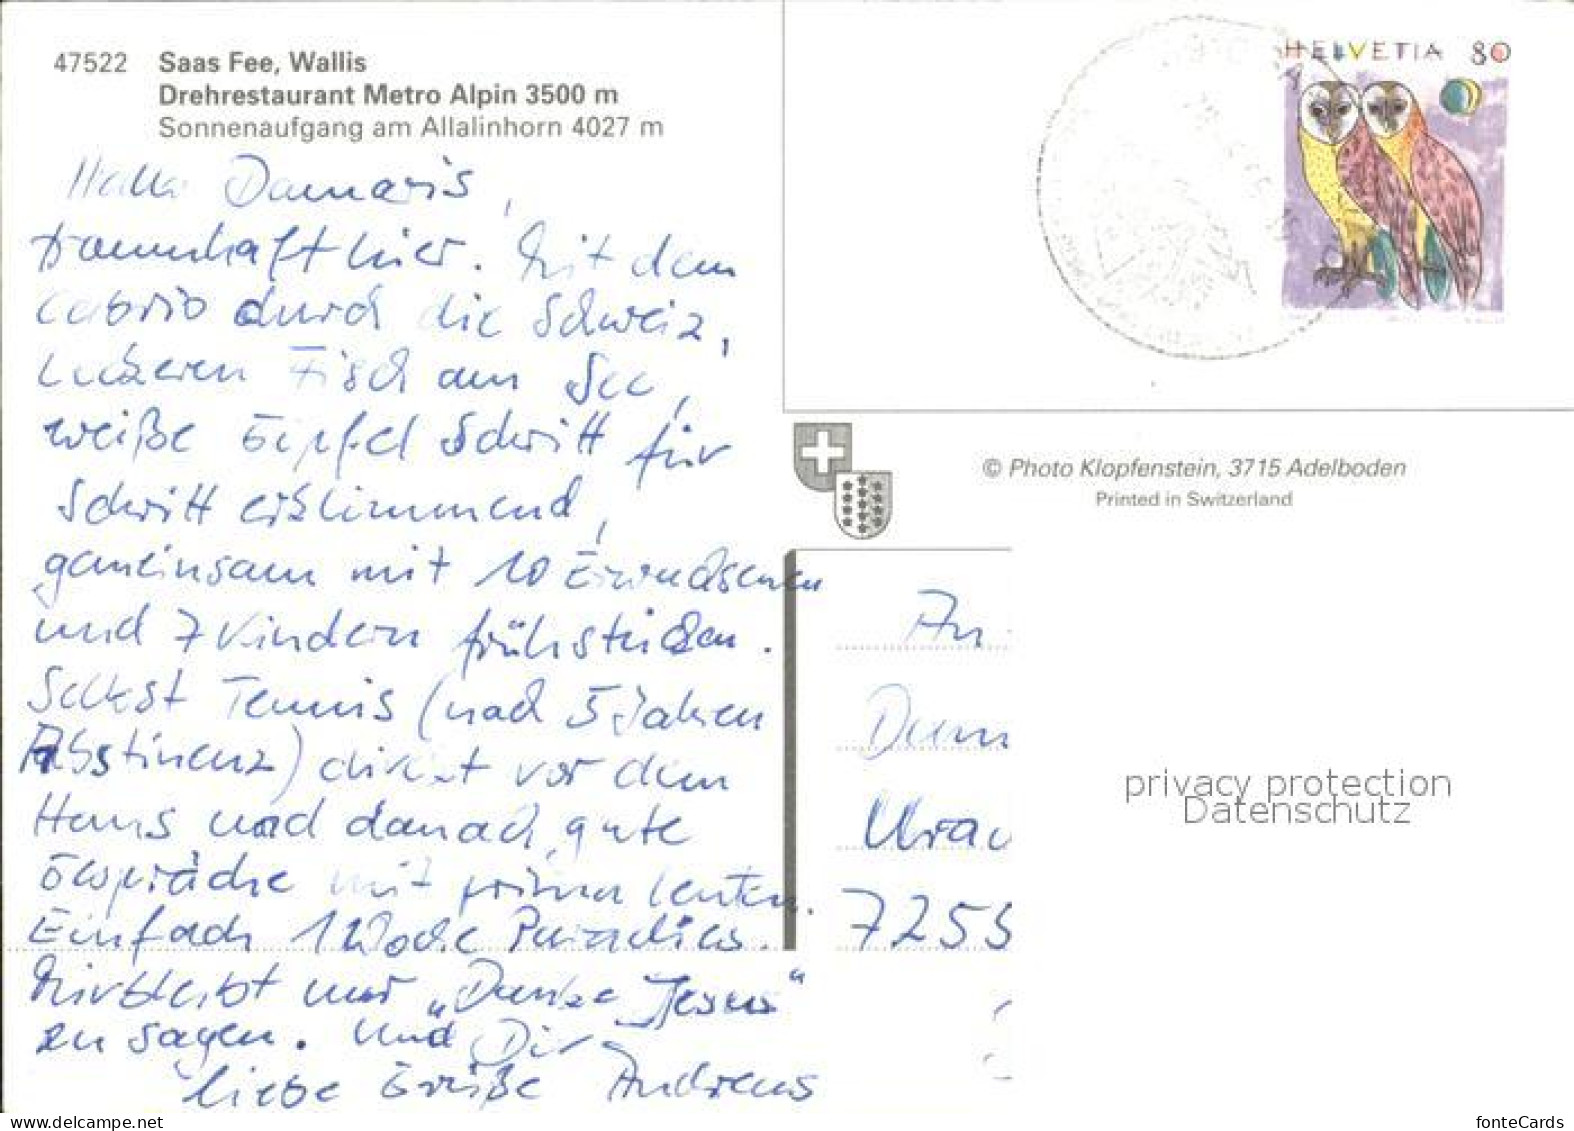 47522 Saas Fee, Wallis
Drehrestaurant Metro Alpin 3500 m
Sonnenaufgang am Allalinhorn 4027 m
Hallo Damaris,
traumhaft hier. Mit dem
Cabrio durch die Schweiz,
leckeren Fisch am See,
weiße Gipfel Schritt für
Schritt erklimmend,
gemeinsam mit 10 Erwachsenen
und 7 Kindern frühstücken.
Selbst Tennis (nach 5 Jahren
Abstinenz) direkt vor dem
Haus und danach gute
Gespräche mit prima Leuten.
Einfach 1 Woche Paradies.
Mir bleibt nur „Danke Jesus"
zu sagen. Und Dir
liebe Grüße Andreas
HELVETIA 80
© Photo Klopfenstein, 3715 Adelboden
Printed in Switzerland
An
Dam
Urac
7255
privacy protection
Datenschutz
www.delcampe.net
fonteCards